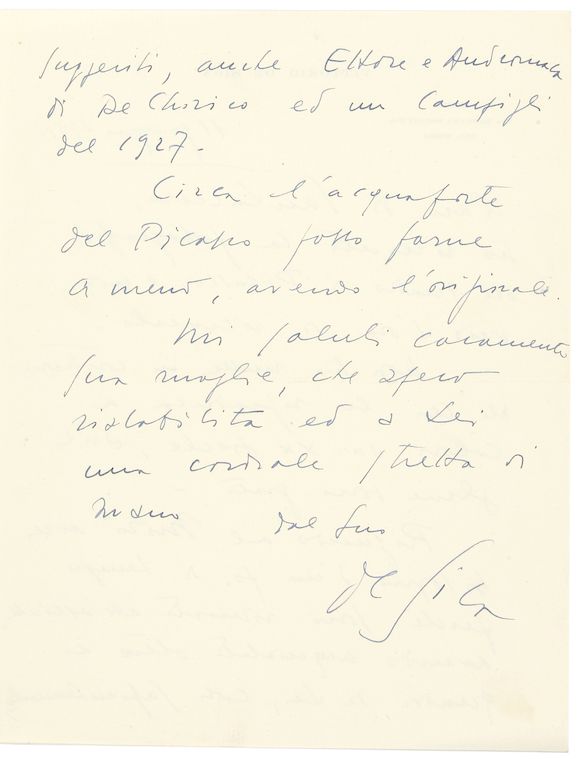 suggeriti, anche Ettore e Andromaca
di De Chirico ed un Campigli
del 1927.
Circa l'acquaforte
del Picasso posso farne
a meno, avendo l'originale.
Mi saluti caramente
sua moglie, che spero
ristabilita ed a Lei
una cordiale stretta di
mano dal suo
De Sica